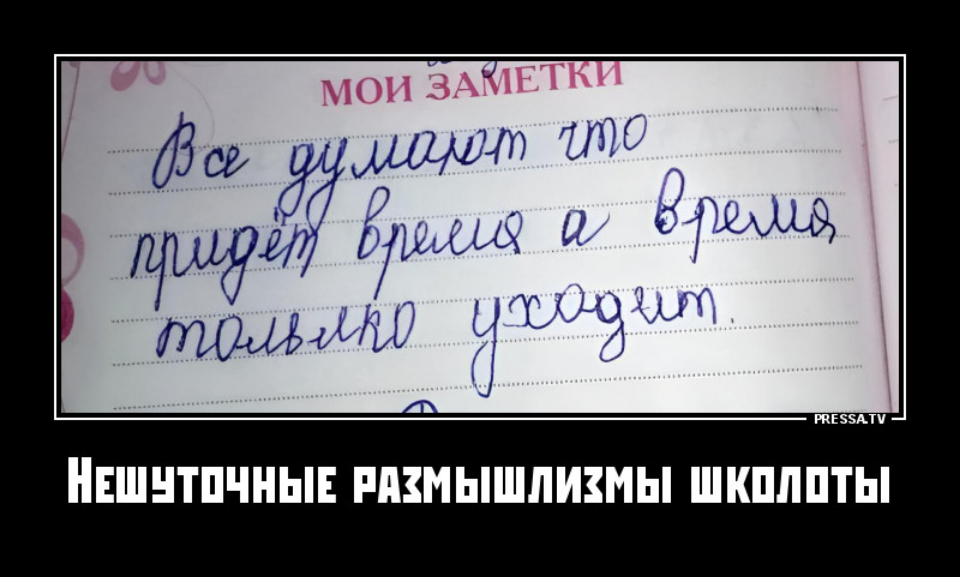 МОИ ЗАМЕТКИ
Все думают что
придёт время а время
только уходит.
PRESSA.TV
Нешуточные размышлизмы школоты